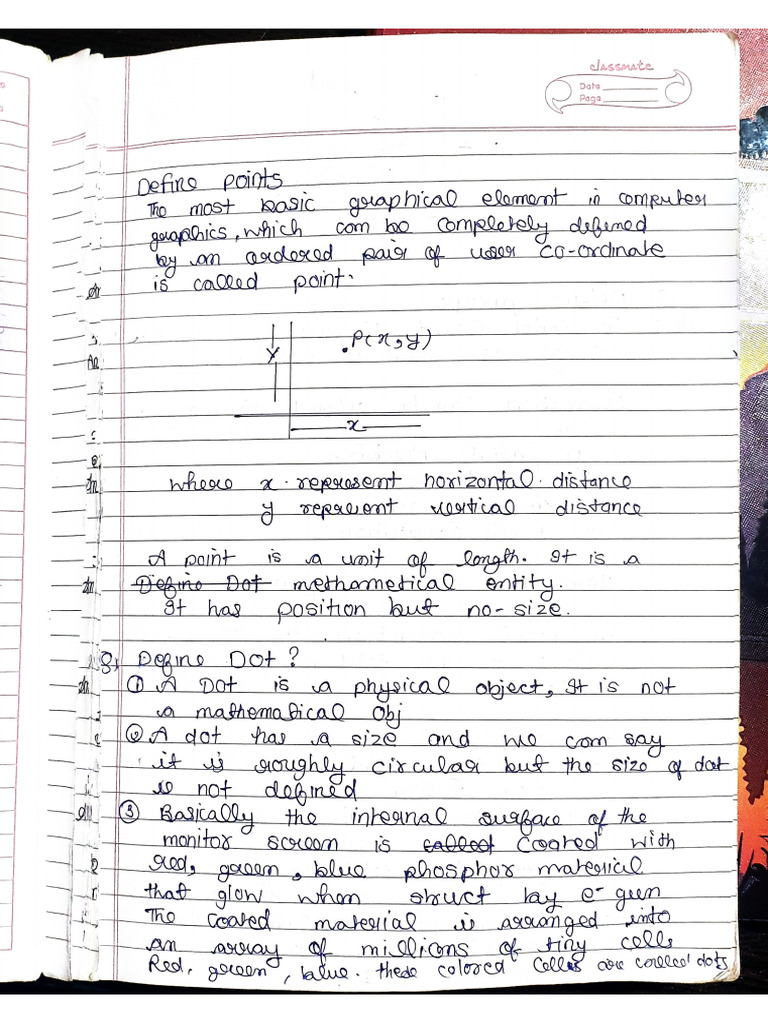 classmate
Date
Page
Define points
The most basic graphical element in computer
graphics, which can be completely defined
by an ordered pair of user co-ordinate
is called point.
P(x, y)
Y
x
where x represent horizontal distance
y represent vertical distance
A point is a unit of length. It is a
Define Dot methametical entity.
It has position but no-size.
Q. Define Dot?
① A Dot is a physical object, It is not
a mathematical obj
② A dot has a size and we can say
it is roughly circular but the size of dot
is not defined
③ Basically the internal surface of the
monitor screen is called coated with
Red, green, blue phosphor material
that glow when struct by e- gun
The coated material is arranged into
an array of millions of tiny cells
Red, green, blue. these colored cells are called dots